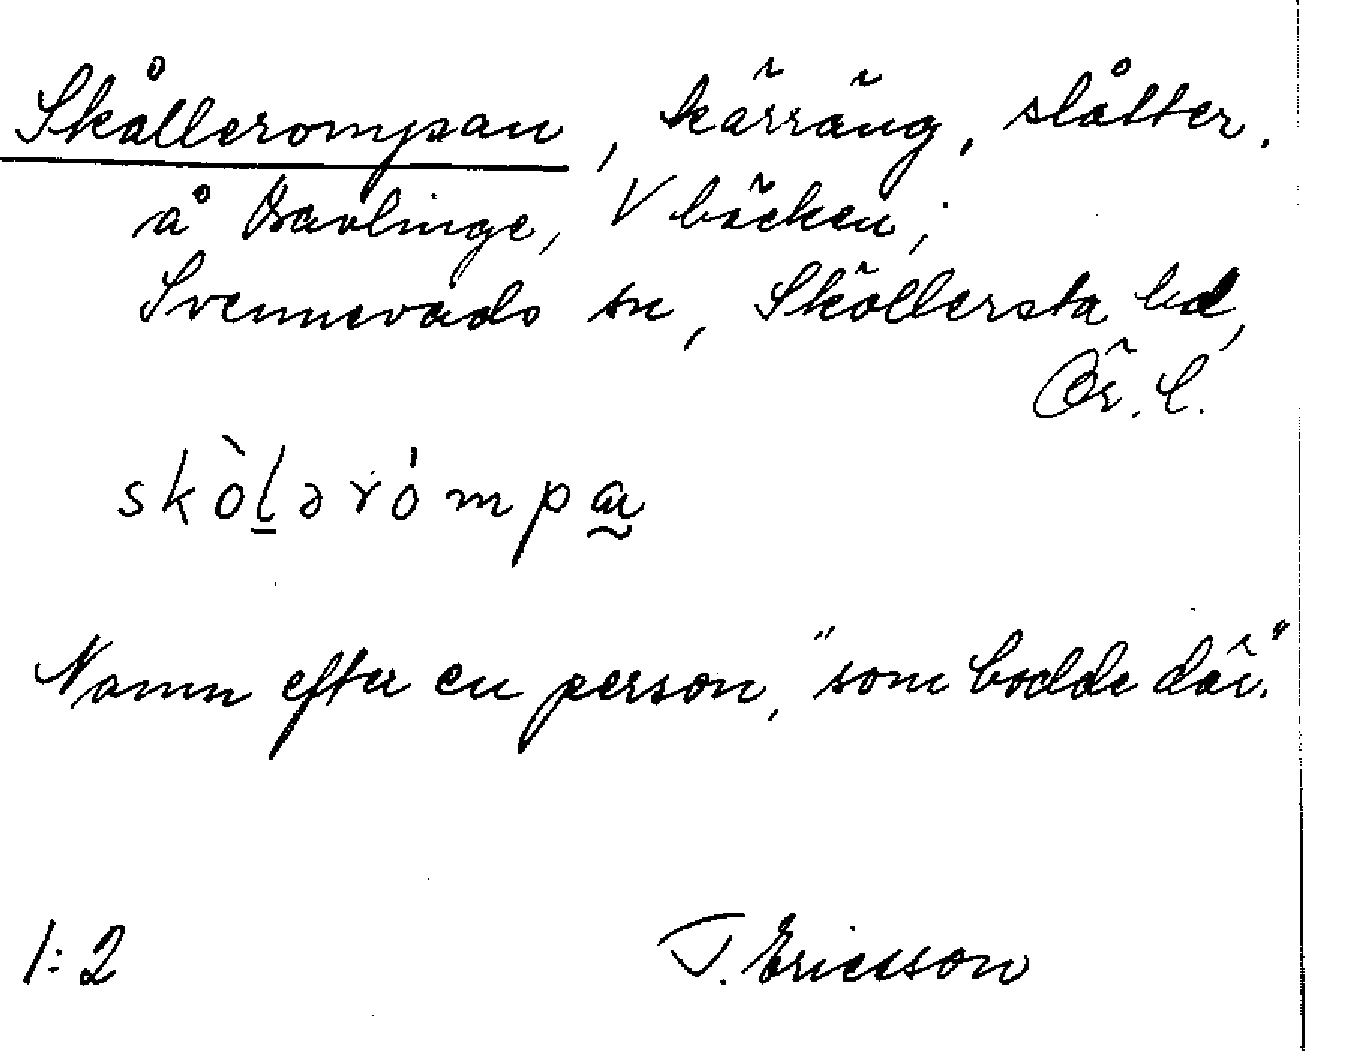 Skållerompan, kärräng, slåtter.
å Bavlinge, V bäcken,
Svennevads sn, Sköllersta hd,
Ör. l.
skòl̲ərómpa̰
Namn efter en person, "som bodde där."
1:2 T. Ericsson